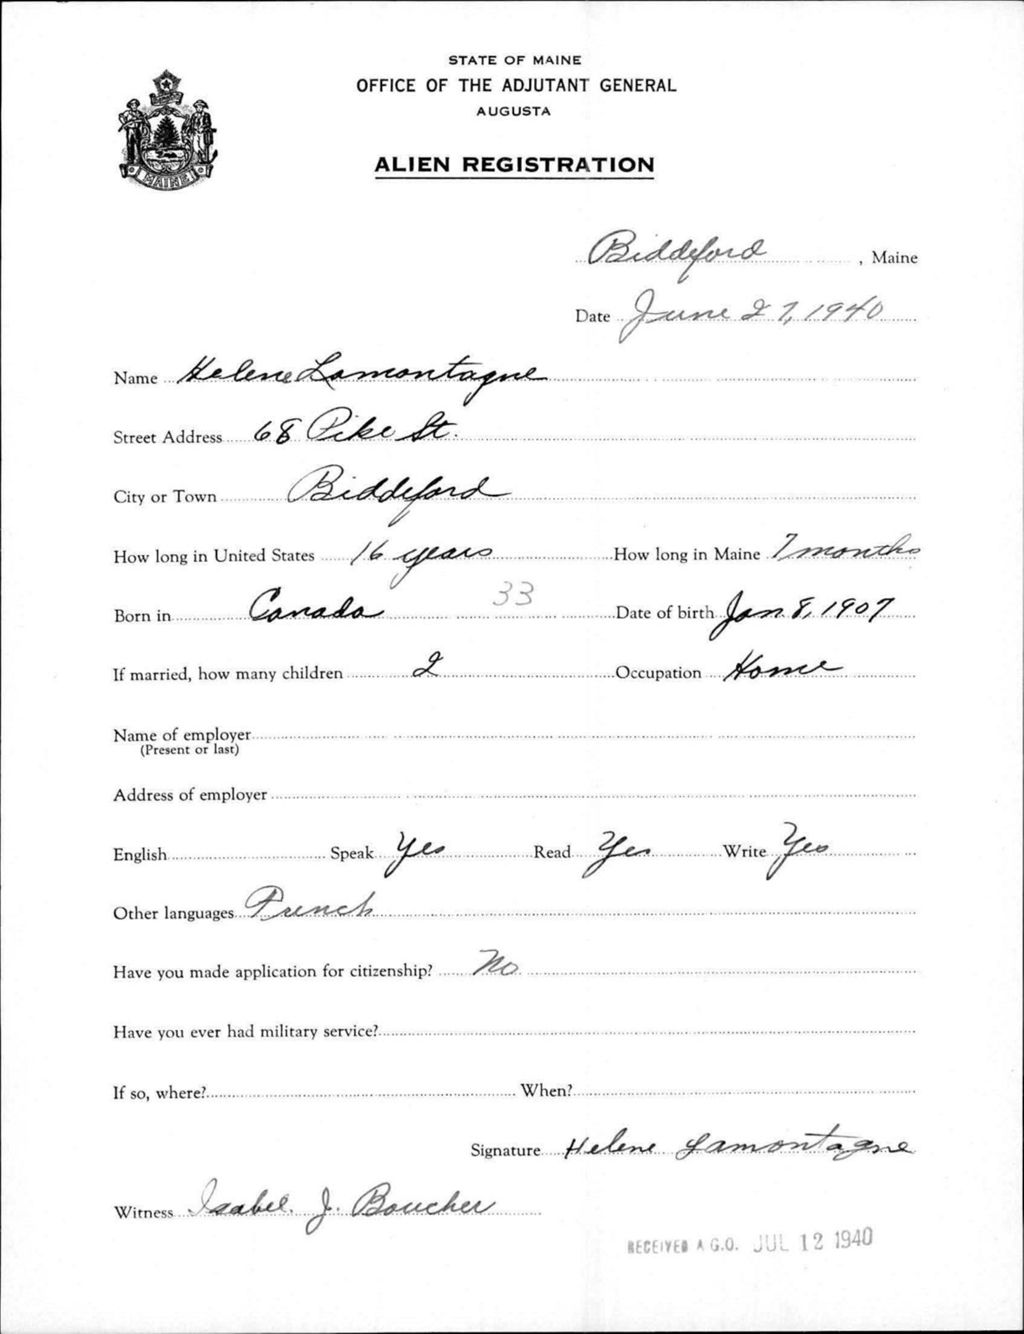 STATE OF MAINE
OFFICE OF THE ADJUTANT GENERAL
AUGUSTA
ALIEN REGISTRATION
MAINE
Biddeford, Maine
Date June 27, 1940
Name Helene Lamontagne
Street Address 68 Pike St.
City or Town Biddeford
How long in United States 16 years How long in Maine 7 months
Born in Canada 33 Date of birth Jan 8, 1907
If married, how many children 2 Occupation Home
Name of employer
(Present or last)
Address of employer
English Speak Yes Read Yes Write Yes
Other languages French
Have you made application for citizenship? No
Have you ever had military service?
If so, where? When?
Signature Helene Lamontagne
Witness Isabel. J. Boucher
RECEIVED A.G.O. JUL 12 1940